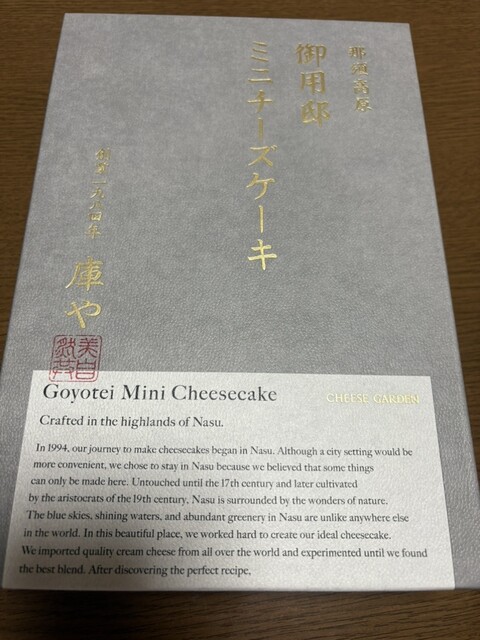 那須高原
御用邸
ミニチーズケーキ
庫や
Goyotei Mini Cheesecake
CHEESE GARDEN
Crafted in the highlands of Nasu.
In 1994, our journey to make cheesecakes began in Nasu. Although a city setting would be
more convenient, we chose to stay in Nasu because we believed that some things
can only be made here. Untouched until the 17th century and later cultivated
by the aristocrats of the 19th century, Nasu is surrounded by the wonders of nature.
The blue skies, shining waters, and abundant greenery in Nasu are unlike anywhere else
in the world. In this beautiful place, we worked hard to create our ideal cheesecake.
We imported quality cream cheese from all over the world and experimented until we found
the best blend. After discovering the perfect recipe,